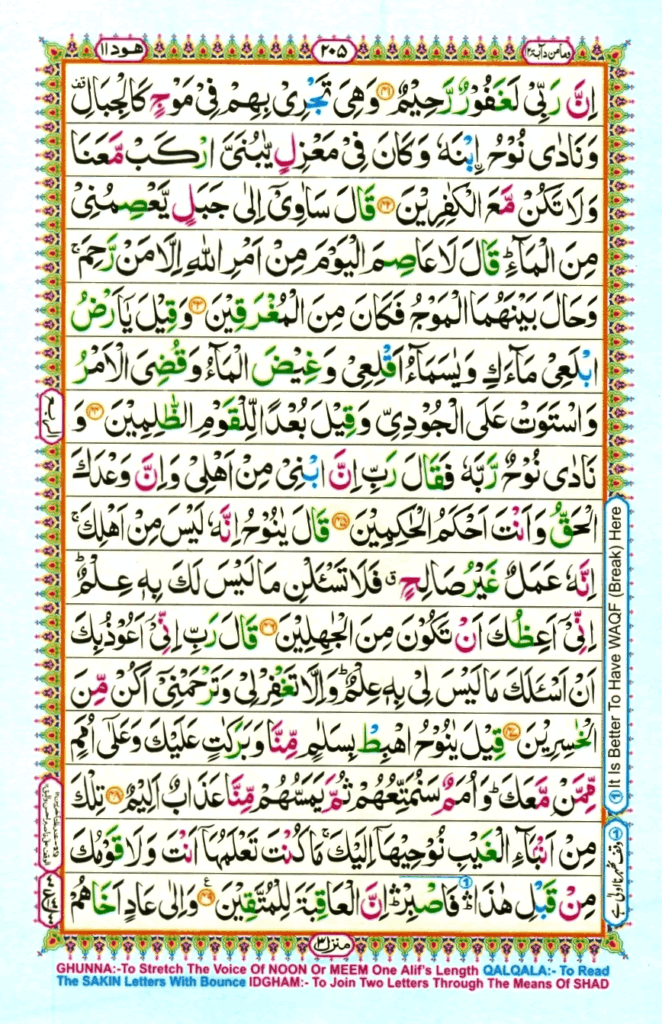 وما من دآبة ١٢
٢٠٥
هود ١١
اِنَّ رَبِّیْ لَغَفُوْرٌ رَّحِیْمٌ ﴿۴۱﴾ وَهِیَ تَجْرِیْ بِهِمْ فِیْ مَوْجٍ كَالْجِبَالِ قف
وَنَادٰی نُوْحُ ِ۟ابْنَهٗ وَكَانَ فِیْ مَعْزِلٍ یّٰبُنَیَّ ارْكَبْ مَّعَنَا
وَلَا تَكُنْ مَّعَ الْكٰفِرِیْنَ ﴿۴۲﴾ قَالَ سَاٰوِیْۤ اِلٰی جَبَلٍ یَّعْصِمُنِیْ
مِنَ الْمَآءِ ؕ قَالَ لَا عَاصِمَ الْیَوْمَ مِنْ اَمْرِ اللّٰهِ اِلَّا مَنْ رَّحِمَ ۚ
وَحَالَ بَیْنَهُمَا الْمَوْجُ فَكَانَ مِنَ الْمُغْرَقِیْنَ ﴿۴۳﴾ وَقِیْلَ یٰۤاَرْضُ
ابْلَعِیْ مَآءَكِ وَیٰسَمَآءُ اَقْلِعِیْ وَغِیْضَ الْمَآءُ وَقُضِیَ الْاَمْرُ
وَاسْتَوَتْ عَلَی الْجُوْدِیِّ وَقِیْلَ بُعْدًا لِّلْقَوْمِ الظّٰلِمِیْنَ ﴿۴۴﴾ وَ
نَادٰی نُوْحٌ رَّبَّهٗ فَقَالَ رَبِّ اِنَّ ابْنِیْ مِنْ اَهْلِیْ وَاِنَّ وَعْدَكَ
الْحَقُّ وَاَنْتَ اَحْكَمُ الْحٰكِمِیْنَ ﴿۴۵﴾ قَالَ یٰنُوْحُ اِنَّهٗ لَیْسَ مِنْ اَهْلِكَ ۚ
اِنَّهٗ عَمَلٌ غَیْرُ صَالِحٍ ۖ٘ فَلَا تَسْـَٔلْنِ مَا لَیْسَ لَكَ بِهٖ عِلْمٌ ؕ
اِنِّیْۤ اَعِظُكَ اَنْ تَكُوْنَ مِنَ الْجٰهِلِیْنَ ﴿۴۶﴾ قَالَ رَبِّ اِنِّیْۤ اَعُوْذُ بِكَ
اَنْ اَسْـَٔلَكَ مَا لَیْسَ لِیْ بِهٖ عِلْمٌ ؕ وَاِلَّا تَغْفِرْ لِیْ وَتَرْحَمْنِیْۤ اَكُنْ مِّنَ
الْخٰسِرِیْنَ ﴿۴۷﴾ قِیْلَ یٰنُوْحُ اهْبِطْ بِسَلٰمٍ مِّنَّا وَبَرَكٰتٍ عَلَیْكَ وَعَلٰۤی اُمَمٍ
مِّمَّنْ مَّعَكَ ؕ وَاُمَمٌ سَنُمَتِّعُهُمْ ثُمَّ یَمَسُّهُمْ مِّنَّا عَذَابٌ اَلِیْمٌ ﴿۴۸﴾ تِلْكَ
مِنْ اَنْۢبَآءِ الْغَیْبِ نُوْحِیْهَاۤ اِلَیْكَ ۚ مَا كُنْتَ تَعْلَمُهَاۤ اَنْتَ وَلَا قَوْمُكَ
مِنْ قَبْلِ هٰذَا ؕۛ فَاصْبِرْ ؕۛ اِنَّ الْعَاقِبَةَ لِلْمُتَّقِیْنَ ﴿۴۹﴾ وَاِلٰی عَادٍ اَخَاهُمْ
منزل ٣
It Is Better To Have WAQF (Break) Here
وقف ٹھہرنا اولیٰ ہے
GHUNNA:-To Stretch The Voice Of NOON Or MEEM One Alif's Length QALQALA:- To Read
The SAKIN Letters With Bounce IDGHAM:- To Join Two Letters Through The Means Of SHAD